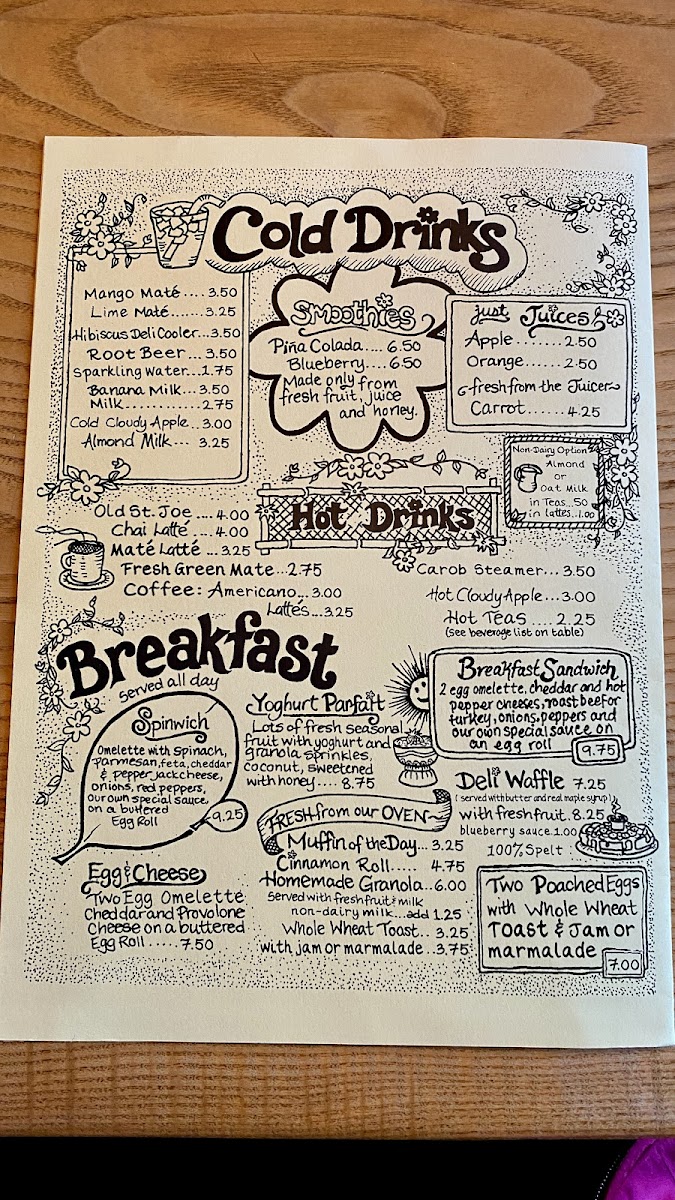 Cold Drinks
Mango Maté....3.50
Lime Maté......3.25
Hibiscus Deli Cooler...3.50
Root Beer...3.50
Sparkling water...1.75
Banana Milk...3.50
Milk.............2.75
Cold Cloudy Apple...3.00
Almond Milk... 3.25
Smoothies
Piña Colada.... 6.50
Blueberry.... 6.50
Made only from
fresh fruit, juice
and honey.
just Juices
Apple........2.50
Orange......2.50
fresh from the Juicer
Carrot......4.25
Non-Dairy Option
Almond
or
Oat Milk
in Teas...50
in lattes...1.00
Hot Drinks
Old St. Joe .... 4.00
Chai Latté .... 4.00
Maté Latté ... 3.25
Fresh Green Mate...2.75
Coffee: Americano...3.00
Lattés...3.25
Carob Steamer...3.50
Hot Cloudy Apple...3.00
Hot Teas .... 2.25
(see beverage list on table)
Breakfast
served all day
Spinwich
Omelette with spinach,
parmesan, feta, cheddar
& pepper jack cheese,
onions, red peppers,
our own special sauce,
on a buttered
Egg Roll
9.25
Yoghurt Parfait
Lots of fresh seasonal
fruit with yoghurt and
granola sprinkles,
coconut, sweetened
with honey.... 8.75
Breakfast Sandwich
2 egg omelette, cheddar and hot
pepper cheeses, roast beef or
turkey, onions, peppers and
our own special sauce on
an egg roll
9.75
Deli Waffle 7.25
(served with butter and real maple syrup)
with fresh fruit. 8.25
blueberry sauce 1.00
100% Spelt
FRESH from our OVEN
Muffin of the Day...3.25
Cinnamon Roll..... 4.75
Homemade Granola...6.00
Served with fresh fruit & milk
non-dairy milk...add 1.25
Whole Wheat Toast.. 3.25
with jam or marmalade..3.75
Egg & Cheese
Two Egg Omelette
Cheddar and Provolone
Cheese on a buttered
Egg Roll ..... 7.50
Two Poached Eggs
with Whole Wheat
Toast & Jam or
marmalade
7.00